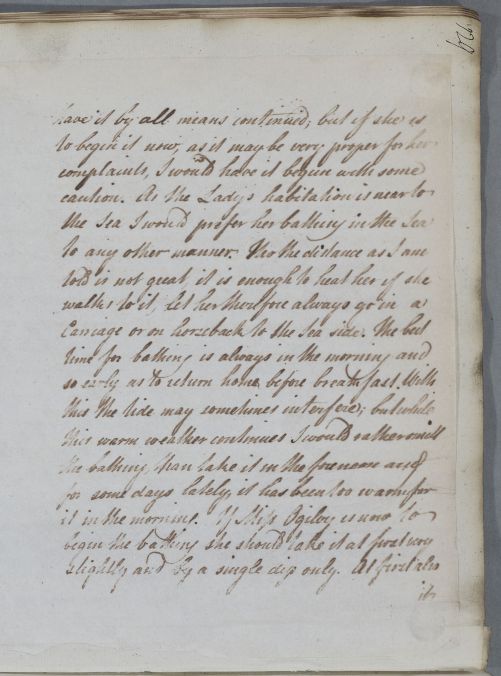 have it by all means continued; but if she is
to begin it now, as it may be very proper for her
complaints, I would have it begun with some
caution. As the Ladys habitation is near to
the Sea I would prefer her bathing in the Sea
to any other manner. Tho the distance as I am
told is not great, it is enough to heat her if she
walks to it, Let her therefore always go in a
Carriage or on horseback to the Sea side. The best
time for bathing is always in the morning and
so early as to return home before breakfast. With
this the tide may sometimes interfere; but while
this warm weather continues I would rather omitt
the bathing than take it in the forenoon and
for some days lately it has been too warm for
it in the morning. If Miss Ogilvy is now to
begin the bathing she should take it at first very
slightly and by a single dip only. At first also
it